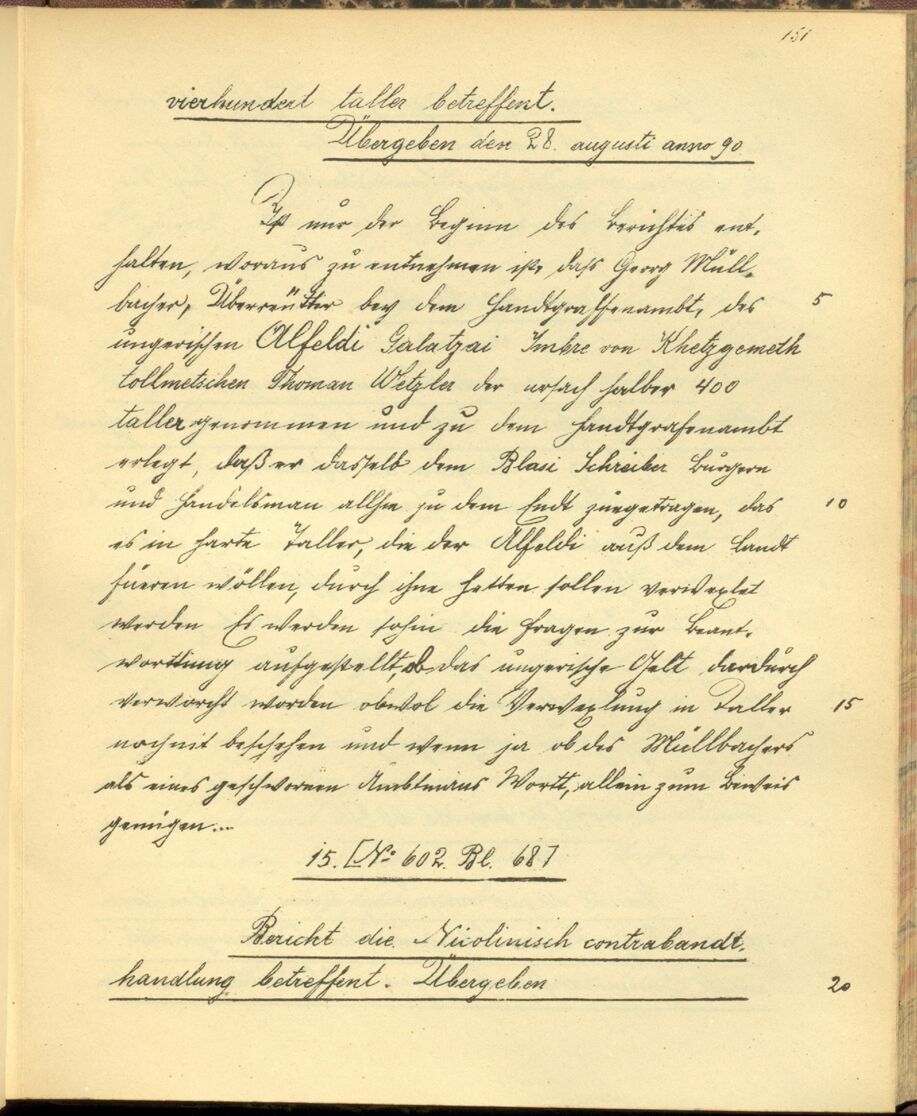 151
vierhundert taller betreffent.
Übergeben den 28. augusti anno 90
Ist nur der Beginn des Berichtes ent-
halten, woraus zu entnehmen ist, daß Georg Müll-
bacher, Überreütter bey dem Handtgraffenambt, des 5
ungerischen Alfeldi Galatzai Imbre von Khetzgemeth
tollmetschen Thoman Wetzler der ursach halber 400
taller genommen und zu dem Handtgrafenambt
erlegt, daß er dasselb dem Blasi Schreiber Burgern
und Handelsman allhie zu dem Endt zuegetragen, das 10
es in harte Taller, die der Alfeldi auß dem Landt
füeren wöllen, durch ihne hetten sollen verwexlet
werden Es werden sohin die Fragen zur Beant-
worttung aufgestellt, ob das ungerische Gelt dardurch
verworcht worden obwol die Verwexlung in Taller 15
noch nit beschehen und wenn ja ob des Müllbachers
als eines geschwornen Ambtmans Wortt, allein zum Beweis
genügen...
15. [No 602. Bl. 687
Bericht die Nicolinisch contrabandt-
handlung betreffent. Übergeben 20